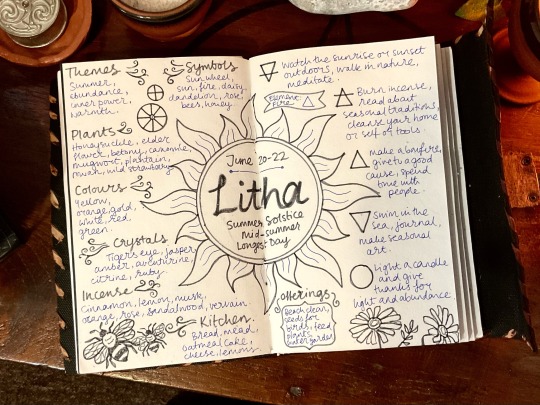 Themes
Summer,
abundance,
inner power,
warmth.
Symbols
sun wheel,
sun, fire, daisy,
dandelion, rose,
bees, honey
Plants
Honeysuckle, elder
flower, betony, camomile,
mugwort, plantain,
wild strawberry
Colours
Yellow,
orange, gold,
white, red,
green.
Crystals
Tigers eye, jasper
amber, aventurine,
citrine, ruby.
Incense
Cinnamon, lemon, musk,
orange, rose, sandalwood, vervain
Kitchen
Bread, mead,
oatmeal cake,
cheese, lemons.
June 20-22
Litha
Summer Solstice
Mid-summer
Longest Day
Watch the sunrise or sunset
outdoors, walk in nature,
meditate.
Element
Fire
Burn incense,
read about
seasonal traditions,
cleanse your home
or self or tools.
make a bonfire,
give to a good
cause, spend
time with
people.
Swim in the
sea, journal,
make seasonal
art.
light a candle
and give
thanks for
light and abundance.
Offerings
Beach clean,
seeds for
birds, feed
plants,